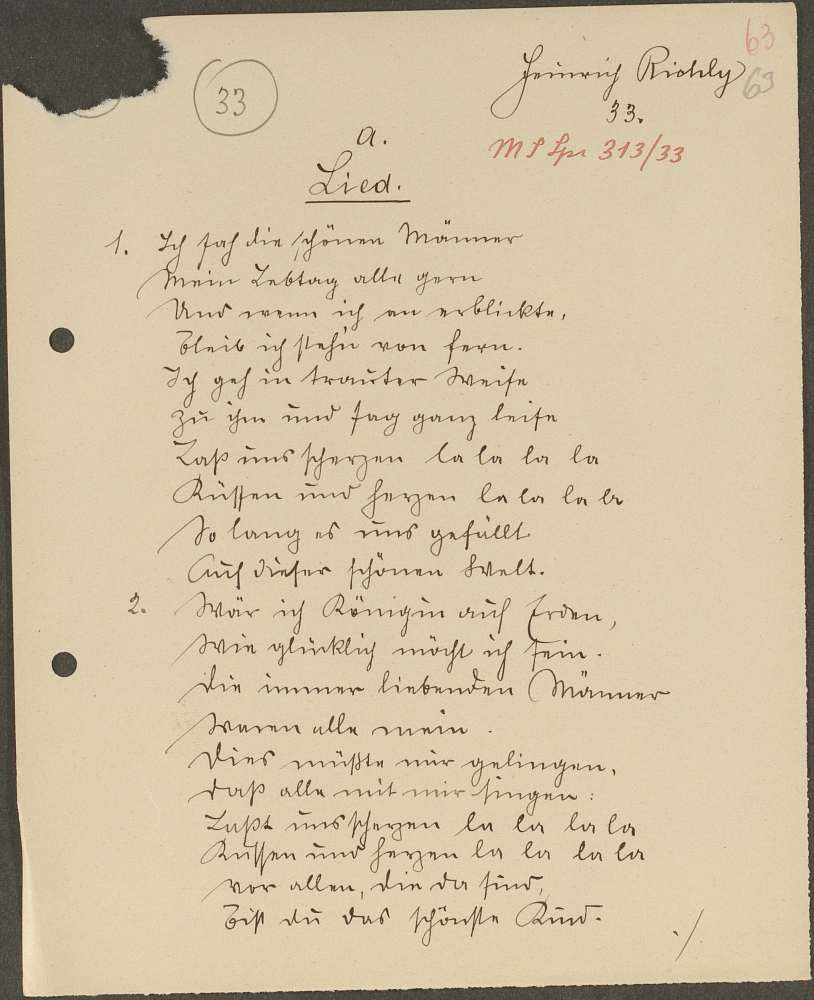 63
Heinrich Richly
63
33
33.
a.
MS Spr 313/33
Lied.
1. Ich sah die schönen Männer
Mein Lebtag alle gern
Und wenn ich en erblickte,
Bleib ich stehn von fern.
Ich geh in trauter Weise
Zu ihm und sag ganz leise
Laß uns scherzen la la la la
Küssen und herzen la la la la
So lang es uns gefällt
Auf dieser schönen Welt.
2. Wär ich Königin auf Erden,
Wie glücklich möcht ich sein.
Die immer liebenden Männer
Waren alle mein.
Dies müßte mir gelingen,
Daß alle mit mir singen:
Laßt uns scherzen la la la la
Küssen und herzen la la la la
Vor allen, die da sind,
Bist du das schönste Kind.
./.